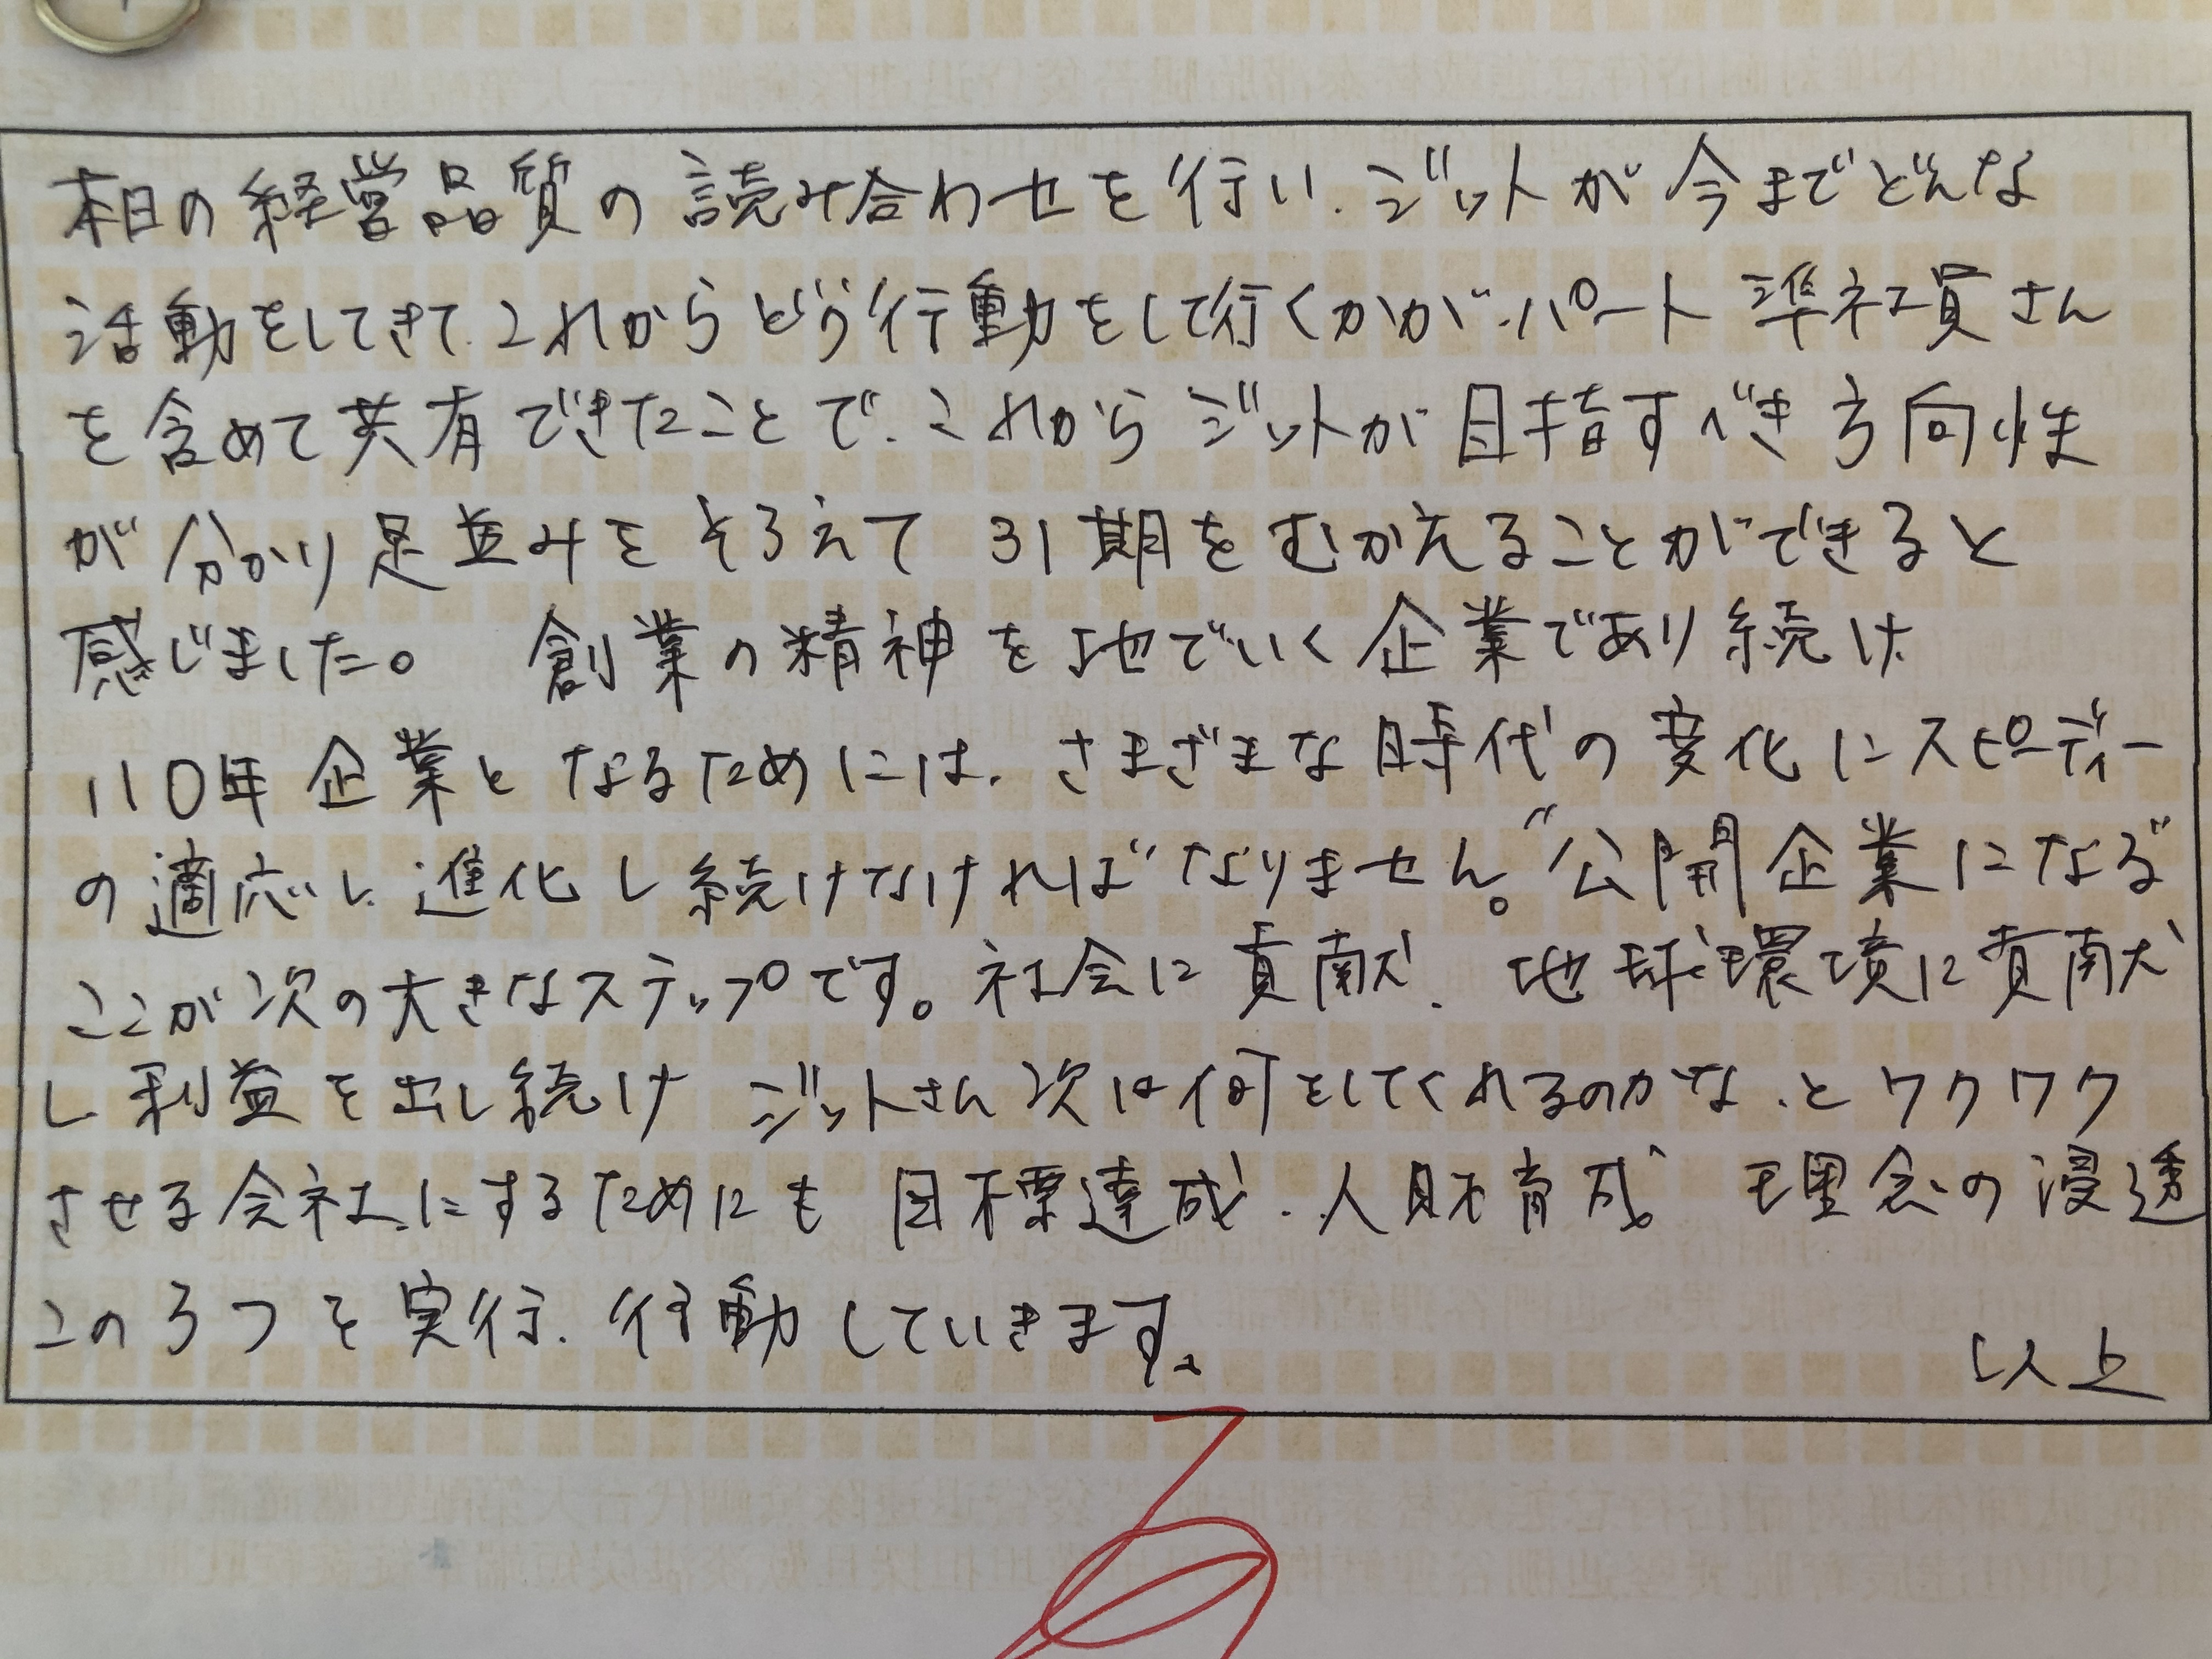 本日の経営品質の読み合わせを行い、ジットが今までどんな
活動をしてきて、これからどう行動をして行くかが、パート準社員さん
を含めて共有できたことで、これからジットが目指すべき方向性
が分かり足並みをそろえて31期をむかえることができると
感じました。 創業の精神を地でいく企業であり続け
110年企業となるためには、さまざまな時代の変化にスピーディー
の適応し、進化し続けなければなりません。"公開企業になる"
ここが次の大きなステップです。社会に貢献、地球環境に貢献
し利益を出し続けジットさん次は何をしてくれるのかな、とワクワク
させる会社にするためにも目標達成、人財育成 理念の浸透
この3つを実行、行動していきます。
以上